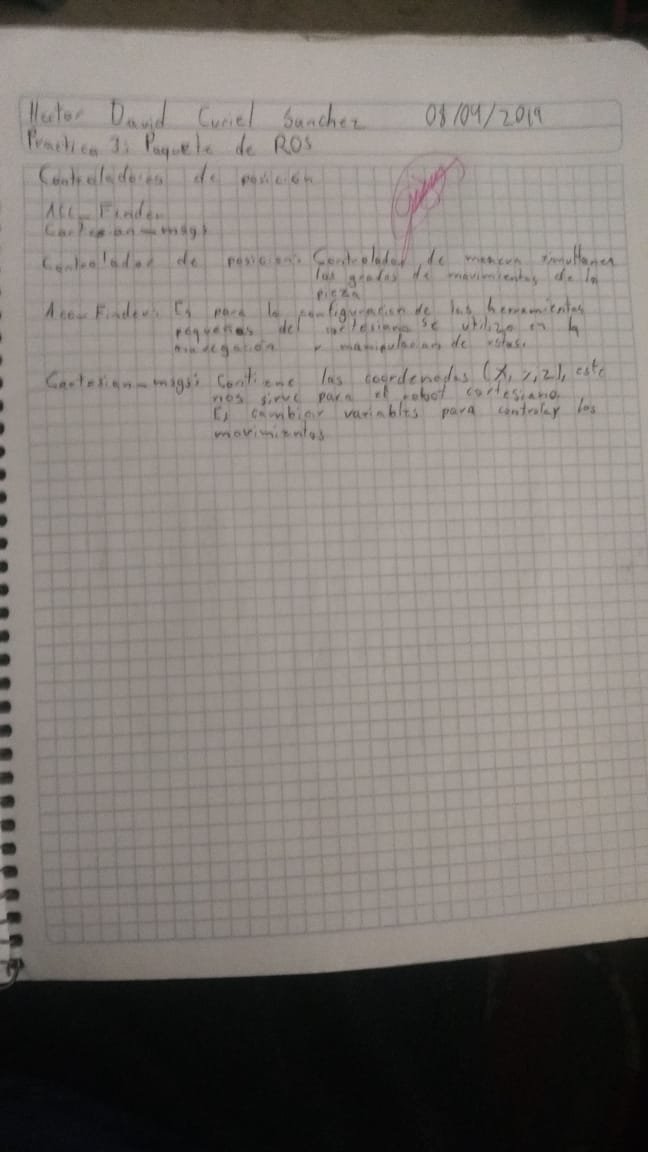 Hector David Curiel Sanchez 08/04/2019
Practica 3: Paquete de ROS
Controladores de posicion
Acc_Finder
Cartesian_msgs
Controlador de posicion: Controlador de manera simultanea
los grados de movimientos de la
pieza
Acc_Finder: Es para la configuracion de las herramientas
pequeñas del cartesiano se utiliza en la
navegación y manipulacion de estas.
Cartesian_msgs: Contiene las coordenadas (X, Y, Z), este
nos sirve para el robot cartesiano.
Es cambiar variables para controlar los
movimientos